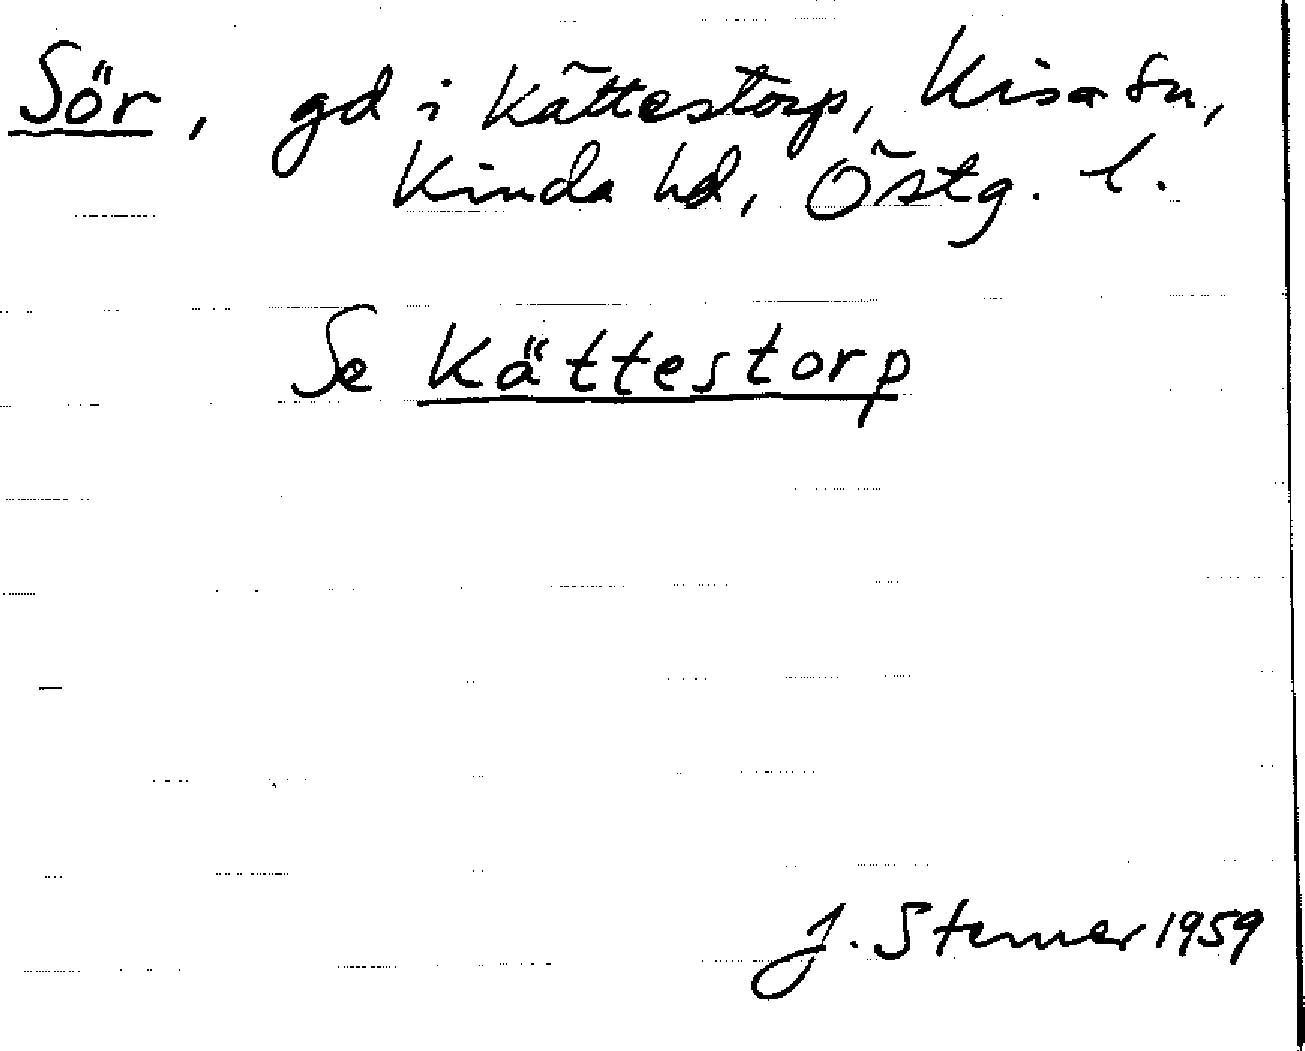 Sör, gd i Kättestorp, Kisa sn,
Kinda hd, Östg. l.
Se Kättestorp
J. Sterner 1959